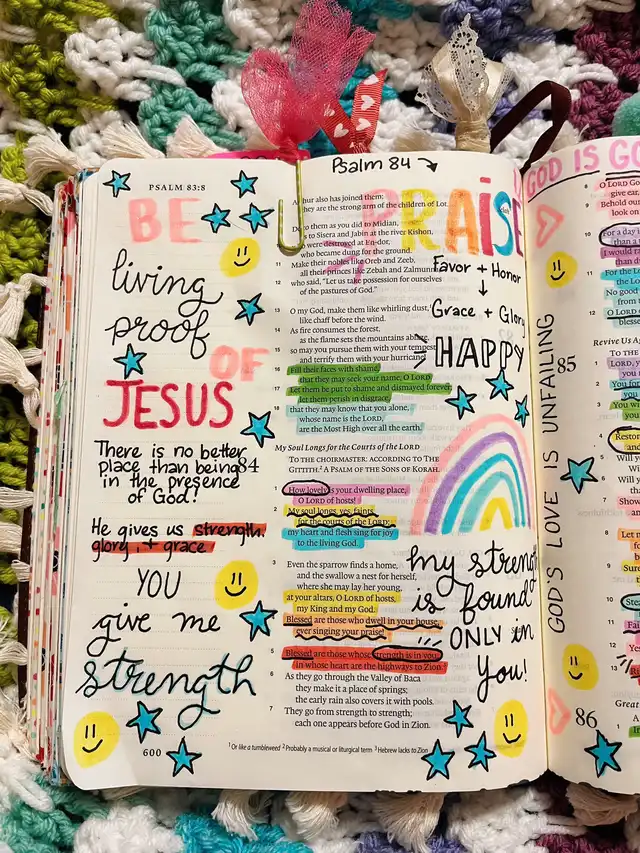 Psalm 84
PSALM 83:8
BE
living
proof
OF
JESUS
There is no better
place than being
in the presence
of God!
He gives us strength,
glory, + grace
YOU
give me
strength
600
also has joined them;
they are the strong arm of the children of Lot.
to them as you did to Midian,
to Sisera and Jabin at the river Kishon,
were destroyed at En-dor,
who became dung for the ground.
11 Make their nobles like Oreb and Zeeb,
all their princes like Zebah and Zalmunna,
12 who said, "Let us take possession for ourselves
of the pastures of God."
13 O my God, make them like whirling dust,¹
like chaff before the wind.
14 As fire consumes the forest,
as the flame sets the mountains ablaze,
15 so may you pursue them with your tempest
and terrify them with your hurricane!
16 Fill their faces with shame,
that they may seek your name, O LORD.
17 Let them be put to shame and dismayed forever;
let them perish in disgrace,
18 that they may know that you alone,
whose name is the LORD,
are the Most High over all the earth.
84
My Soul Longs for the Courts of the LORD
TO THE CHOIRMASTER: ACCORDING TO THE
GITTITH.² A PSALM OF THE SONS OF KORAH.
1 How lovely is your dwelling place,
O LORD of hosts!
2 My soul longs, yes, faints
for the courts of the LORD;
my heart and flesh sing for joy
to the living God.
3 Even the sparrow finds a home,
and the swallow a nest for herself,
where she may lay her young,
at your altars, O LORD of hosts,
my King and my God.
4 Blessed are those who dwell in your house,
ever singing your praise!
5 Blessed are those whose strength is in you,
in whose heart are the highways to Zion.
6 As they go through the Valley of Baca
they make it a place of springs;
the early rain also covers it with pools.
7 They go from strength to strength;
each one appears before God in Zion.
¹ Or like a tumbleweed ² Probably a musical or liturgical term ³ Hebrew lacks to Zion
PRAISE
Favor + Honor
Grace + Glory
HAPPY
my strength
is found
ONLY in
You!
GOD IS
GOD'S LOVE IS UNFAILING
8 O LORD GO
give ear,
9 Behold our
look on
10 For a day i
than a t
I would ra
than d
11 For the
the Lo
No good
from
12 O LORD
blesse
85
Revive Us Aga
TO THE
1 LORD, y
you
2 You
you
3 You wi
you t
4 Restor
and
5 Will yo
Will y
6 Will
7 Show
and
8 Let m
for
9 Sure
10 Ste
11 Fai
12
13
86
Great